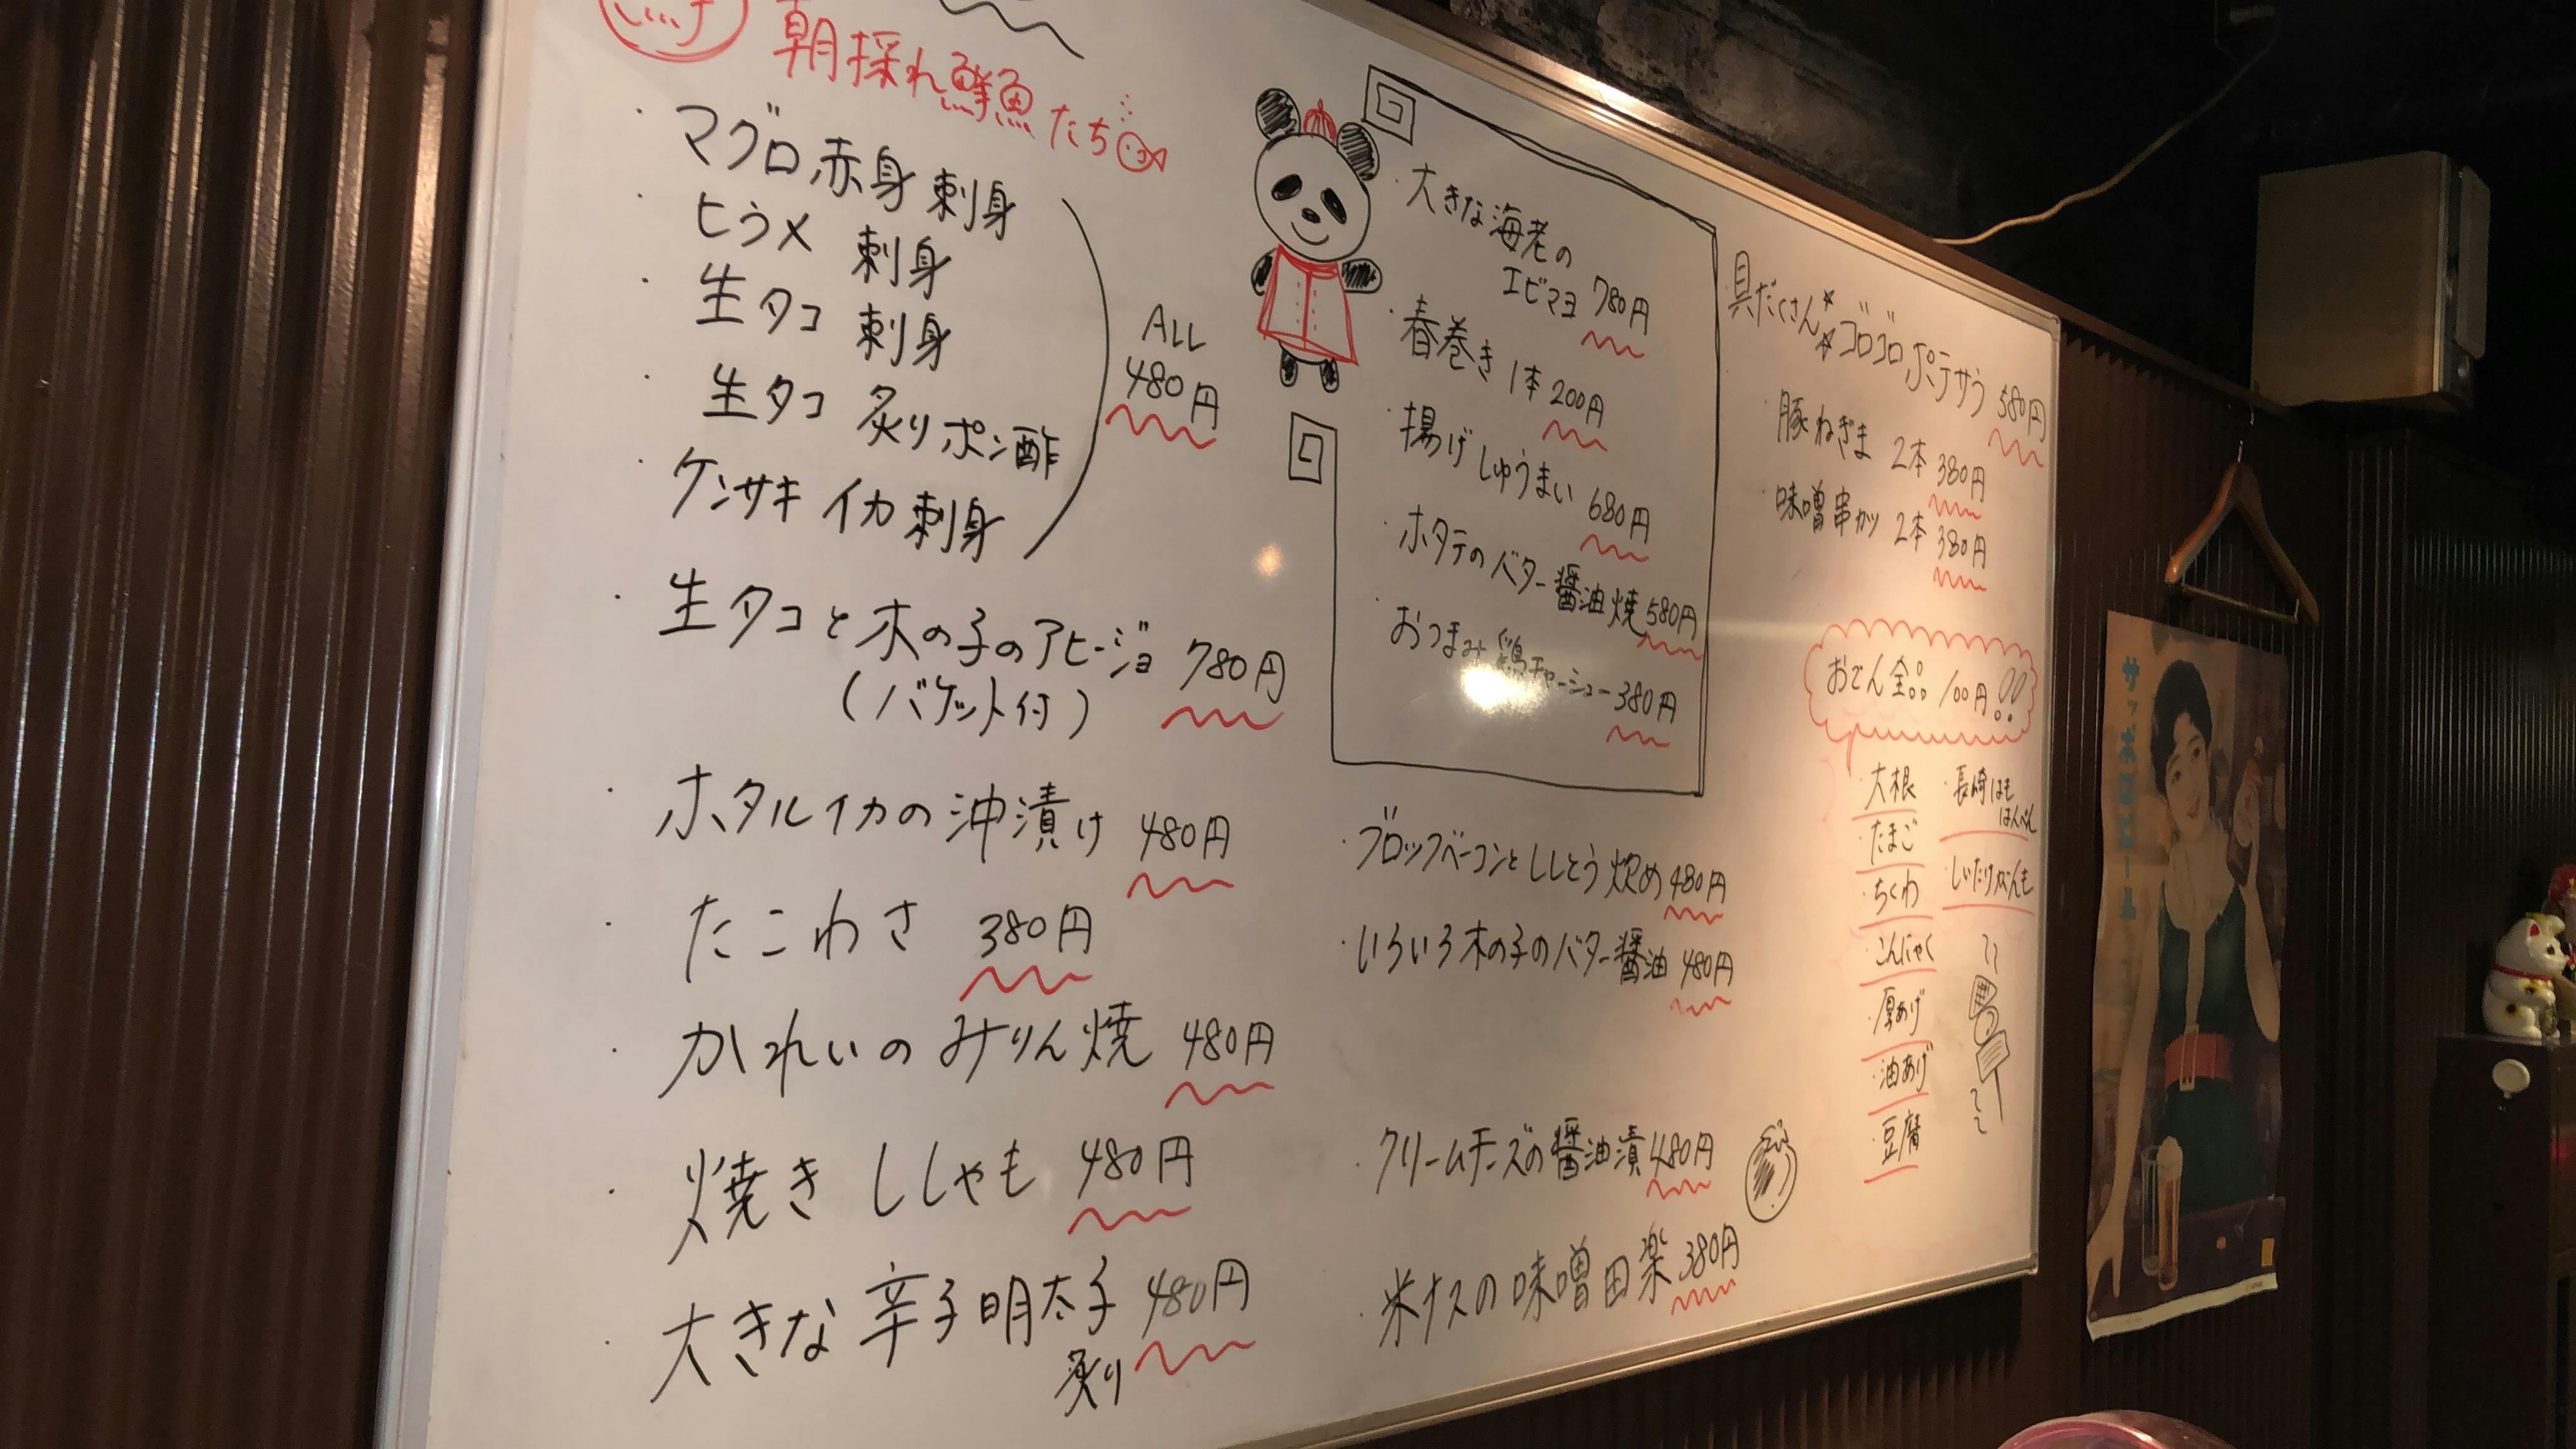 朝採れ鮮魚たち
・マグロ赤身 刺身
・ヒラメ 刺身
・生タコ 刺身
・生タコ 炙りポン酢
・ケンサキイカ刺身
ALL
480円
・生タコと木の子のアヒージョ 780円
(バケット付)
・ホタルイカの沖漬け 480円
・たこわさ 380円
・かれいのみりん焼 480円
・焼きししゃも 480円
・大きな辛子明太子 480円
炙り
・大きな海老の
エビマヨ 780円
・春巻き 1本 200円
・揚げしゅうまい 680円
・ホタテのバター醤油焼 580円
・おつまみ鶏チャーシュー 380円
・ブロックベーコンとししとう炒め 480円
・いろいろ木の子のバター醤油 480円
・クリームチーズの醤油漬 480円
・米ナスの味噌田楽 380円
具だくさん☆☆ゴロゴロポテサラ 580円
・豚ねぎま 2本 380円
・味噌串カツ 2本 380円
おでん全品100円!!
・大根
・たまご
・ちくわ
・こんにゃく
・厚あげ
・油あげ
・豆腐
・長崎はも
はんぺん
サッポロビール